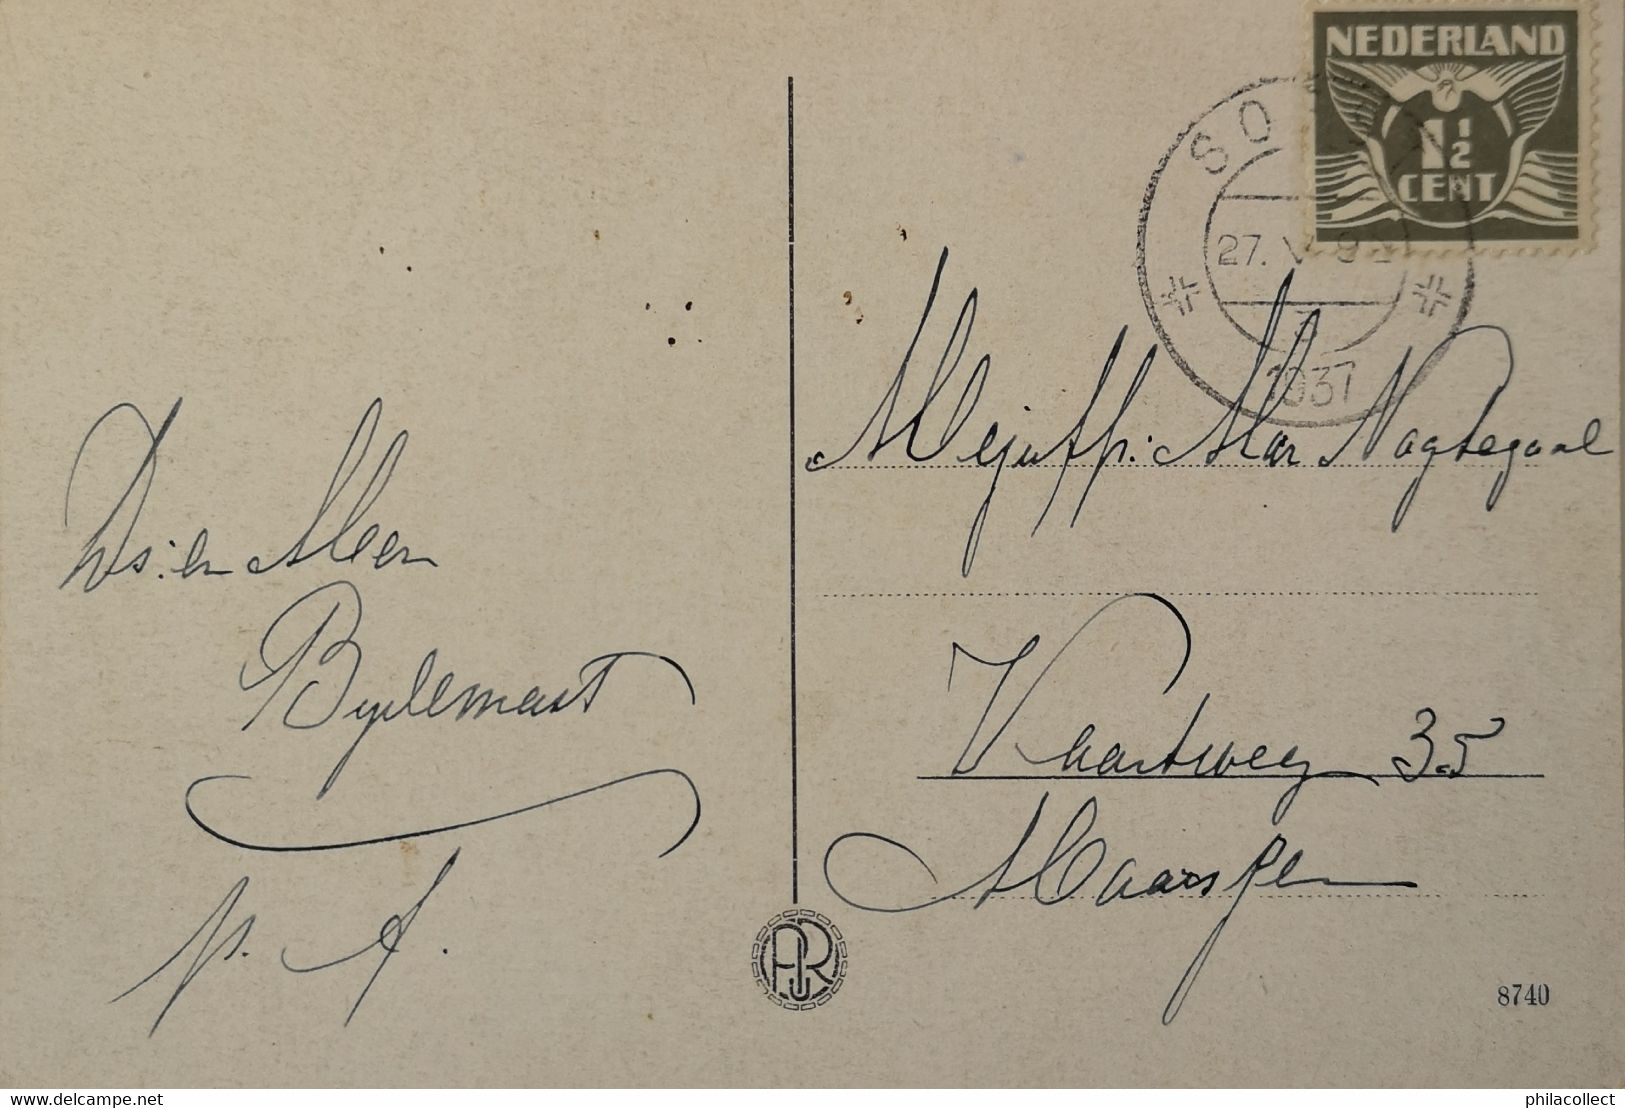 NEDERLAND
1 1/2
CENT
SO
27. V 9
1937
Mejuffr: Mar Nagtegaal
Vaartweg 35
Maarssen
Ds: en Meer
Bylemast
p. f.
AJR
8740
www.delcampe.net
philacollect